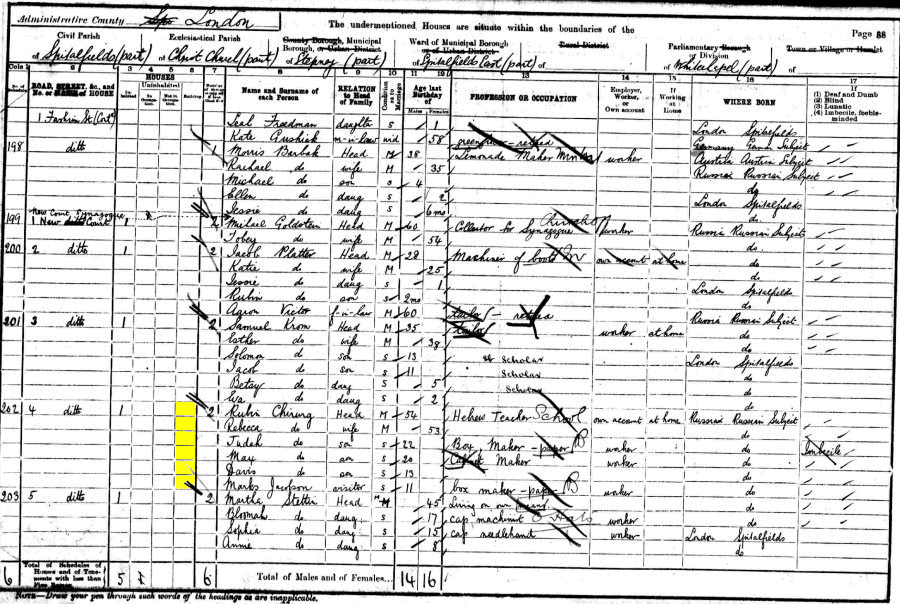 Administrative County London
The undermentioned Houses are situate within the boundaries of the
Page 88
Civil Parish
of Spitalfields (part)
Ecclesiastical Parish
of Christ Church (part)
County Borough, Municipal
Borough, or Urban District
of Stepney (part)
Ward of Municipal Borough
or of Urban District
of Spitalfields East (part)
Rural District
of
Parliamentary Borough
Division
of Whitechapel (part)
Town or Village or Hamlet
of
ROAD, STREET, &c., and No. or NAME of HOUSE
HOUSES
Uninhabited
Name and Surname of each Person
RELATION to Head of Family
Condition as to Marriage
Age last Birthday of
Males Females
PROFESSION OR OCCUPATION
Employer, Worker, or Own account
If Working at Home
WHERE BORN
(1) Deaf and Dumb
(2) Blind
(3) Lunatic
(4) Imbecile, feeble-minded
1 Fashion St (Cont) Leah Freedman daughter S 1 London Spitalfields
Kate m-in-law wid 58 retired Germany Subject
198 ditto 1 Morris Barbak Head M 38 Lemonade Maker worker Austria Subject
Rachael do wife M 35 Russia Russian Subject
Michael do son S 4 do
Ellen do daug S 2 London Spitalfields
Jessie do daug S 6 mo do
199 New Court Synagogue
1 New Court 1 2 Head M 60 Collector for Synagogue worker Russia Russian Subject
Tobey do wife M 54 do
200 2 ditto 1 2 Jacob Platter Head M 28 Machiner of boots own account at home do
Katie do wife M 25 do
Jessie do daug S 1 London Spitalfields
Rubin do son S 2 mo do
Aaron Victor f-in-law M 60 Tailor retired Russia Russian Subject
201 3 ditto 1 2 Samuel Krom Head M 35 Tailor worker at home do
Esther do wife M 38 do
Solomon do son S 13 Scholar London Spitalfields
Jacob do son S 11 Scholar do
Betsy do daug S 5 Scholar do
Eva do daug S 2 do
202 4 ditto 1 2 Rubin Chirurg Head M 54 Hebrew Teacher School own account at home Russia Russian Subject
Rebecca do wife M 53 do
Judah do son S 22 Box Maker - paper worker do Imbecile
Max do son S 20 Maker worker do
Davis do son S 13 do
Marks Jacobson visitor S 11 box maker - paper worker do
203 5 ditto 1 2 Martha Stettin Head M 45 Living on own means do
Bloomah do daug S 17 cap machinist worker do
Sophia do daug S 15 cap needlehand worker London Spitalfields
Annie do daug S 8 do
6 Total of Schedules of Houses and of Tenements with less than Five Rooms 5 6 Total of Males and of Females... 14 16
NOTE—Draw your pen through such words of the headings as are inapplicable.